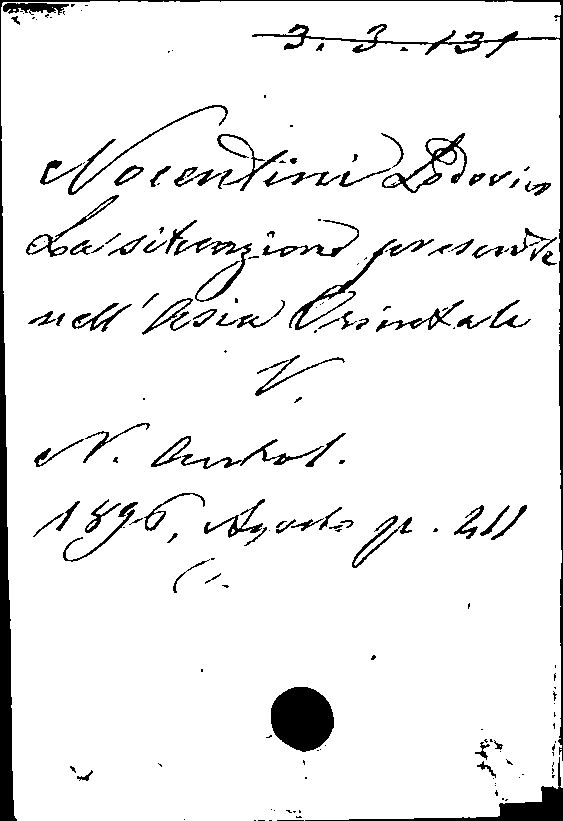 3. 3. 131
Nocentini Lodovico
La situazione presente
nell'Asia Orientale
V.
N. Antol.
1896, Agosto p. 211